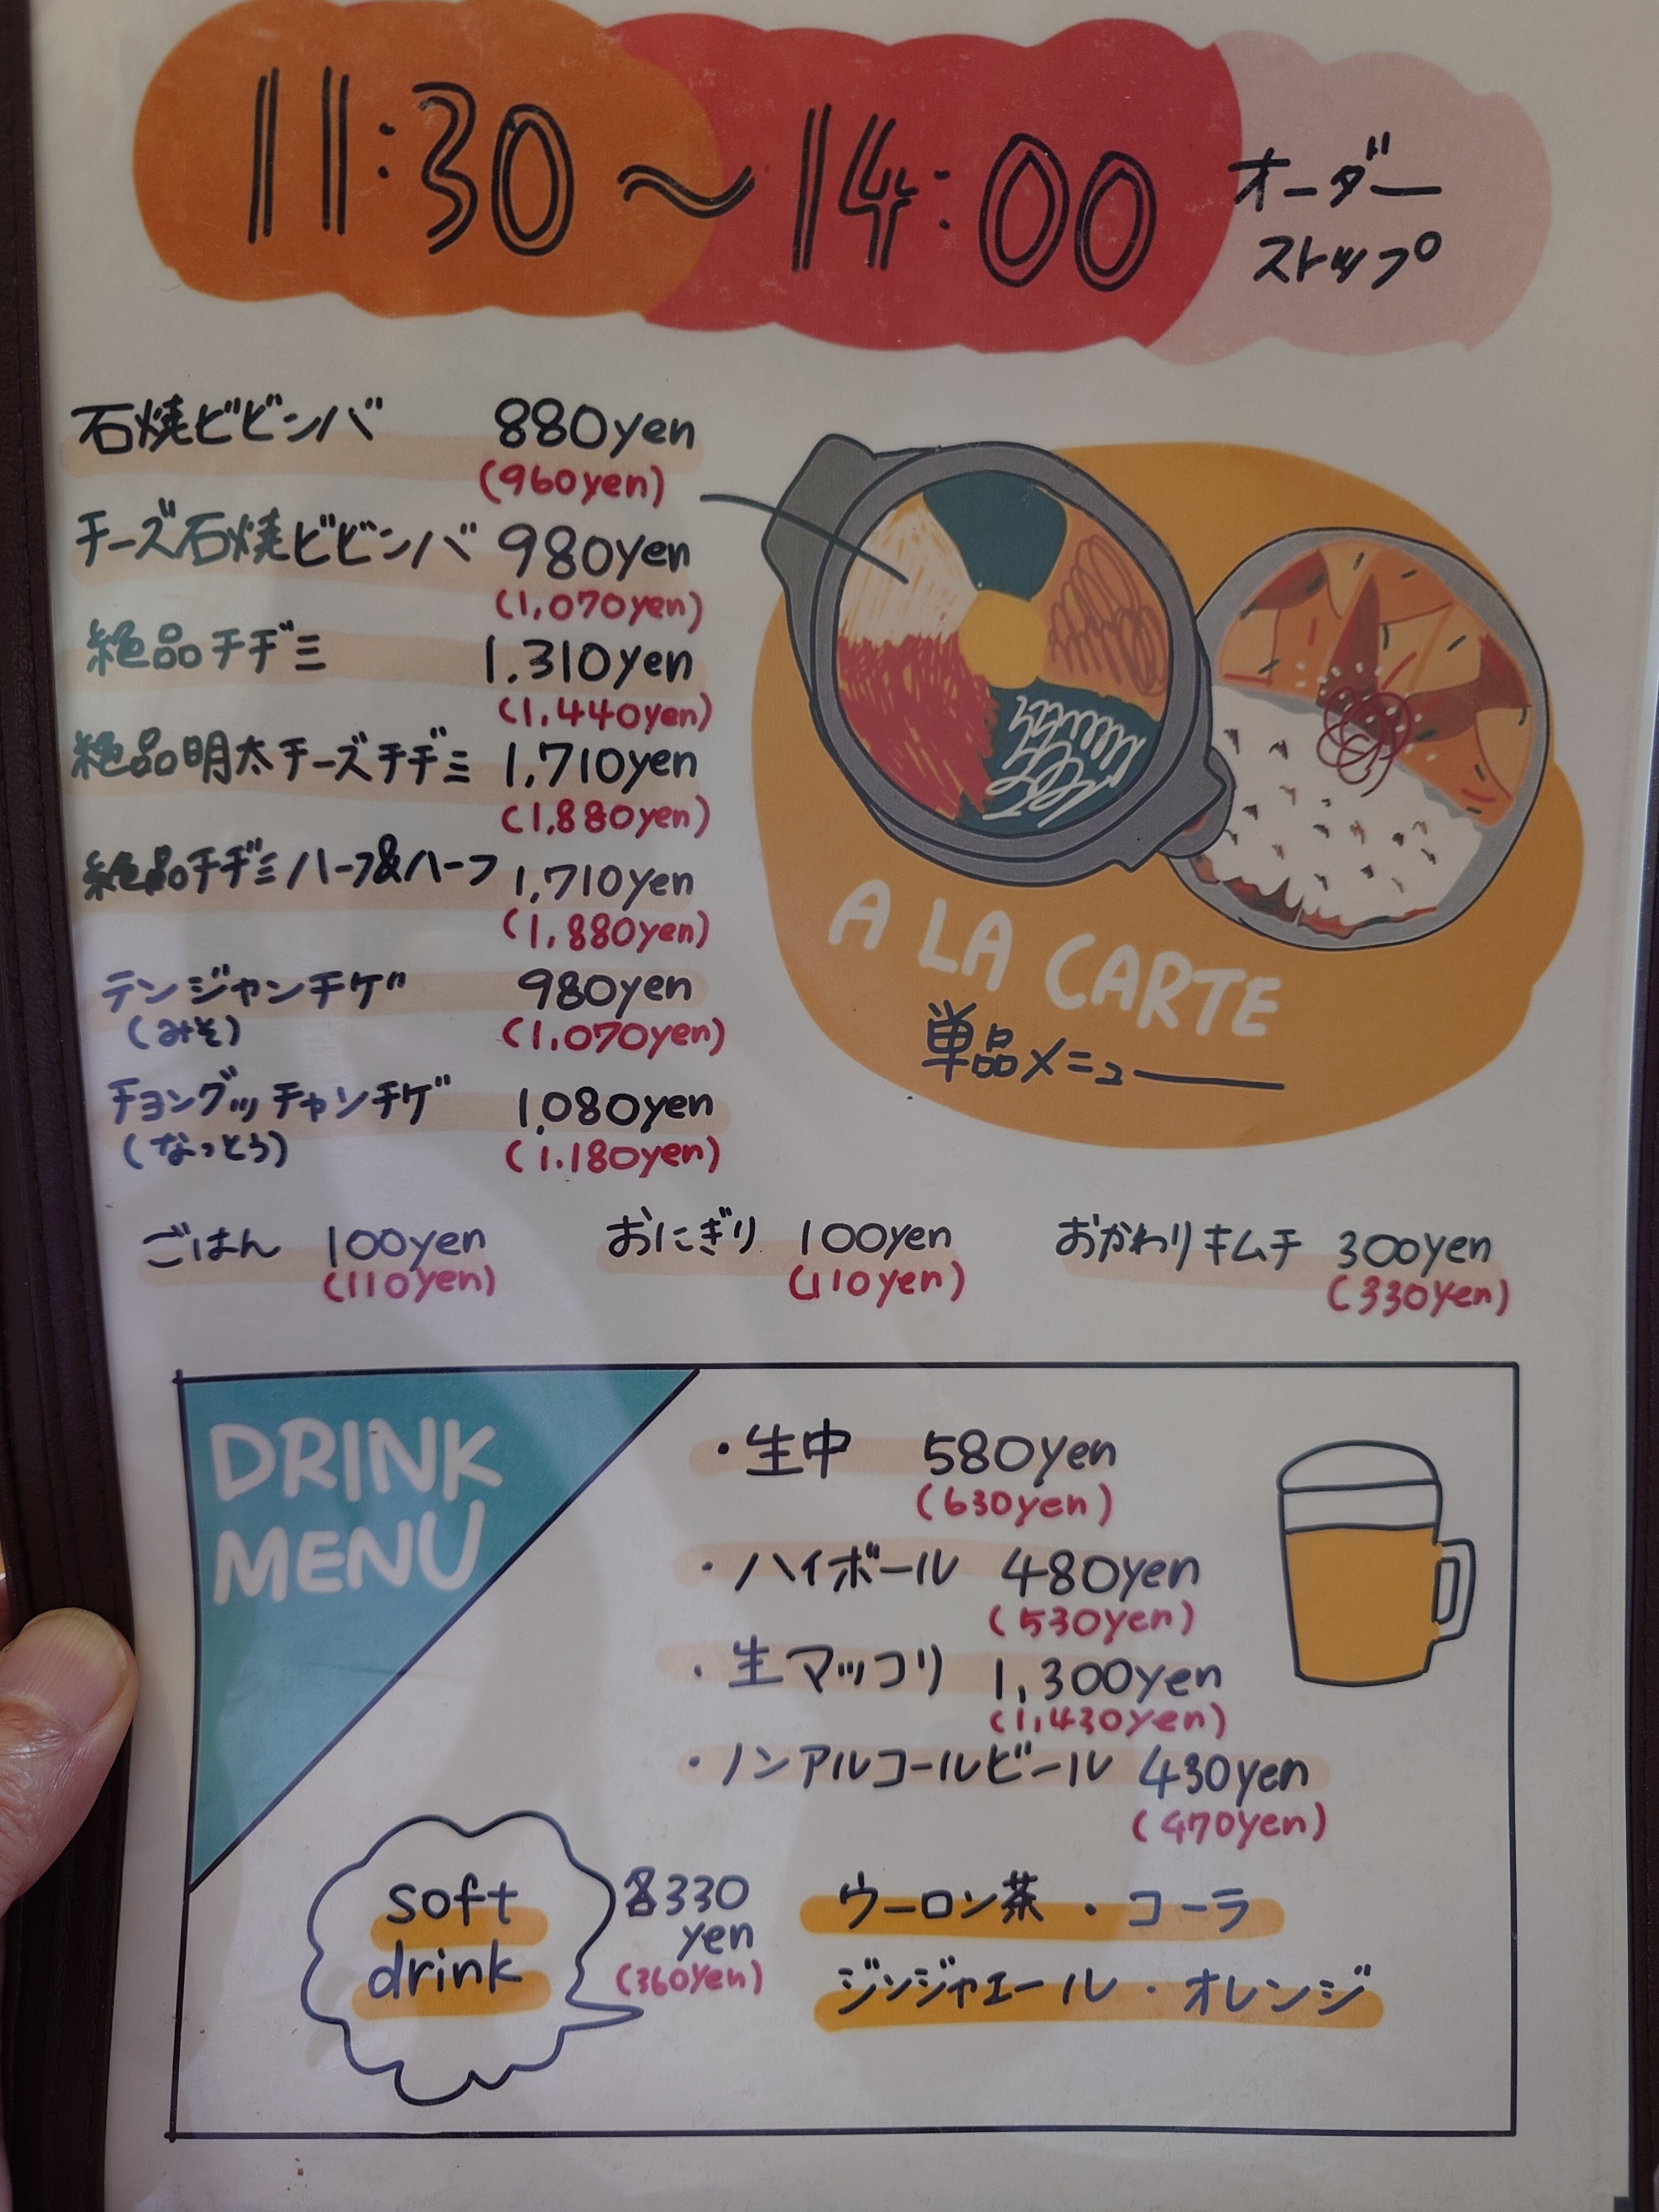 11:30～14:00 オーダーストップ
石焼ビビンバ 880yen
(960yen)
チーズ石焼ビビンバ 980yen
(1,070yen)
絶品チヂミ 1.310yen
(1,440yen)
絶品明太チーズチヂミ 1,710yen
(1,880yen)
絶品チヂミハーフ&ハーフ 1,710yen
(1,880yen)
テンジャンチゲ 980yen
(みそ) (1,070yen)
チョングッチャンチゲ 1,080yen
(なっとう) (1.180yen)
A LA CARTE
単品メニュー
ごはん 100yen おにぎり 100yen おかわりキムチ 300yen
(110yen) (110yen) (330yen)
DRINK
MENU
・生中 580yen
(630yen)
・ハイボール 480yen
(530yen)
・生マッコリ 1,300yen
(1,430yen)
・ノンアルコールビール 430yen
(470yen)
soft
drink
各330
yen
(360yen)
ウーロン茶・コーラ
ジンジャエール・オレンジ